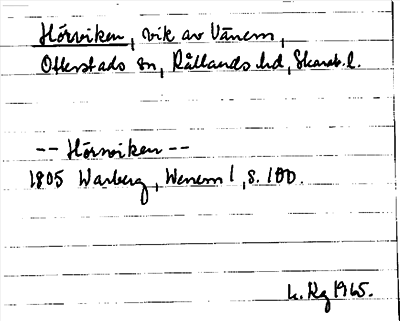 Hörviken, vik av Vänern,
Otterstads sn, Kållands hd, Skarab. l.
-- Hörviken --
1805 Warberg, Wenern I, s. 100.
L. Rg 1965.